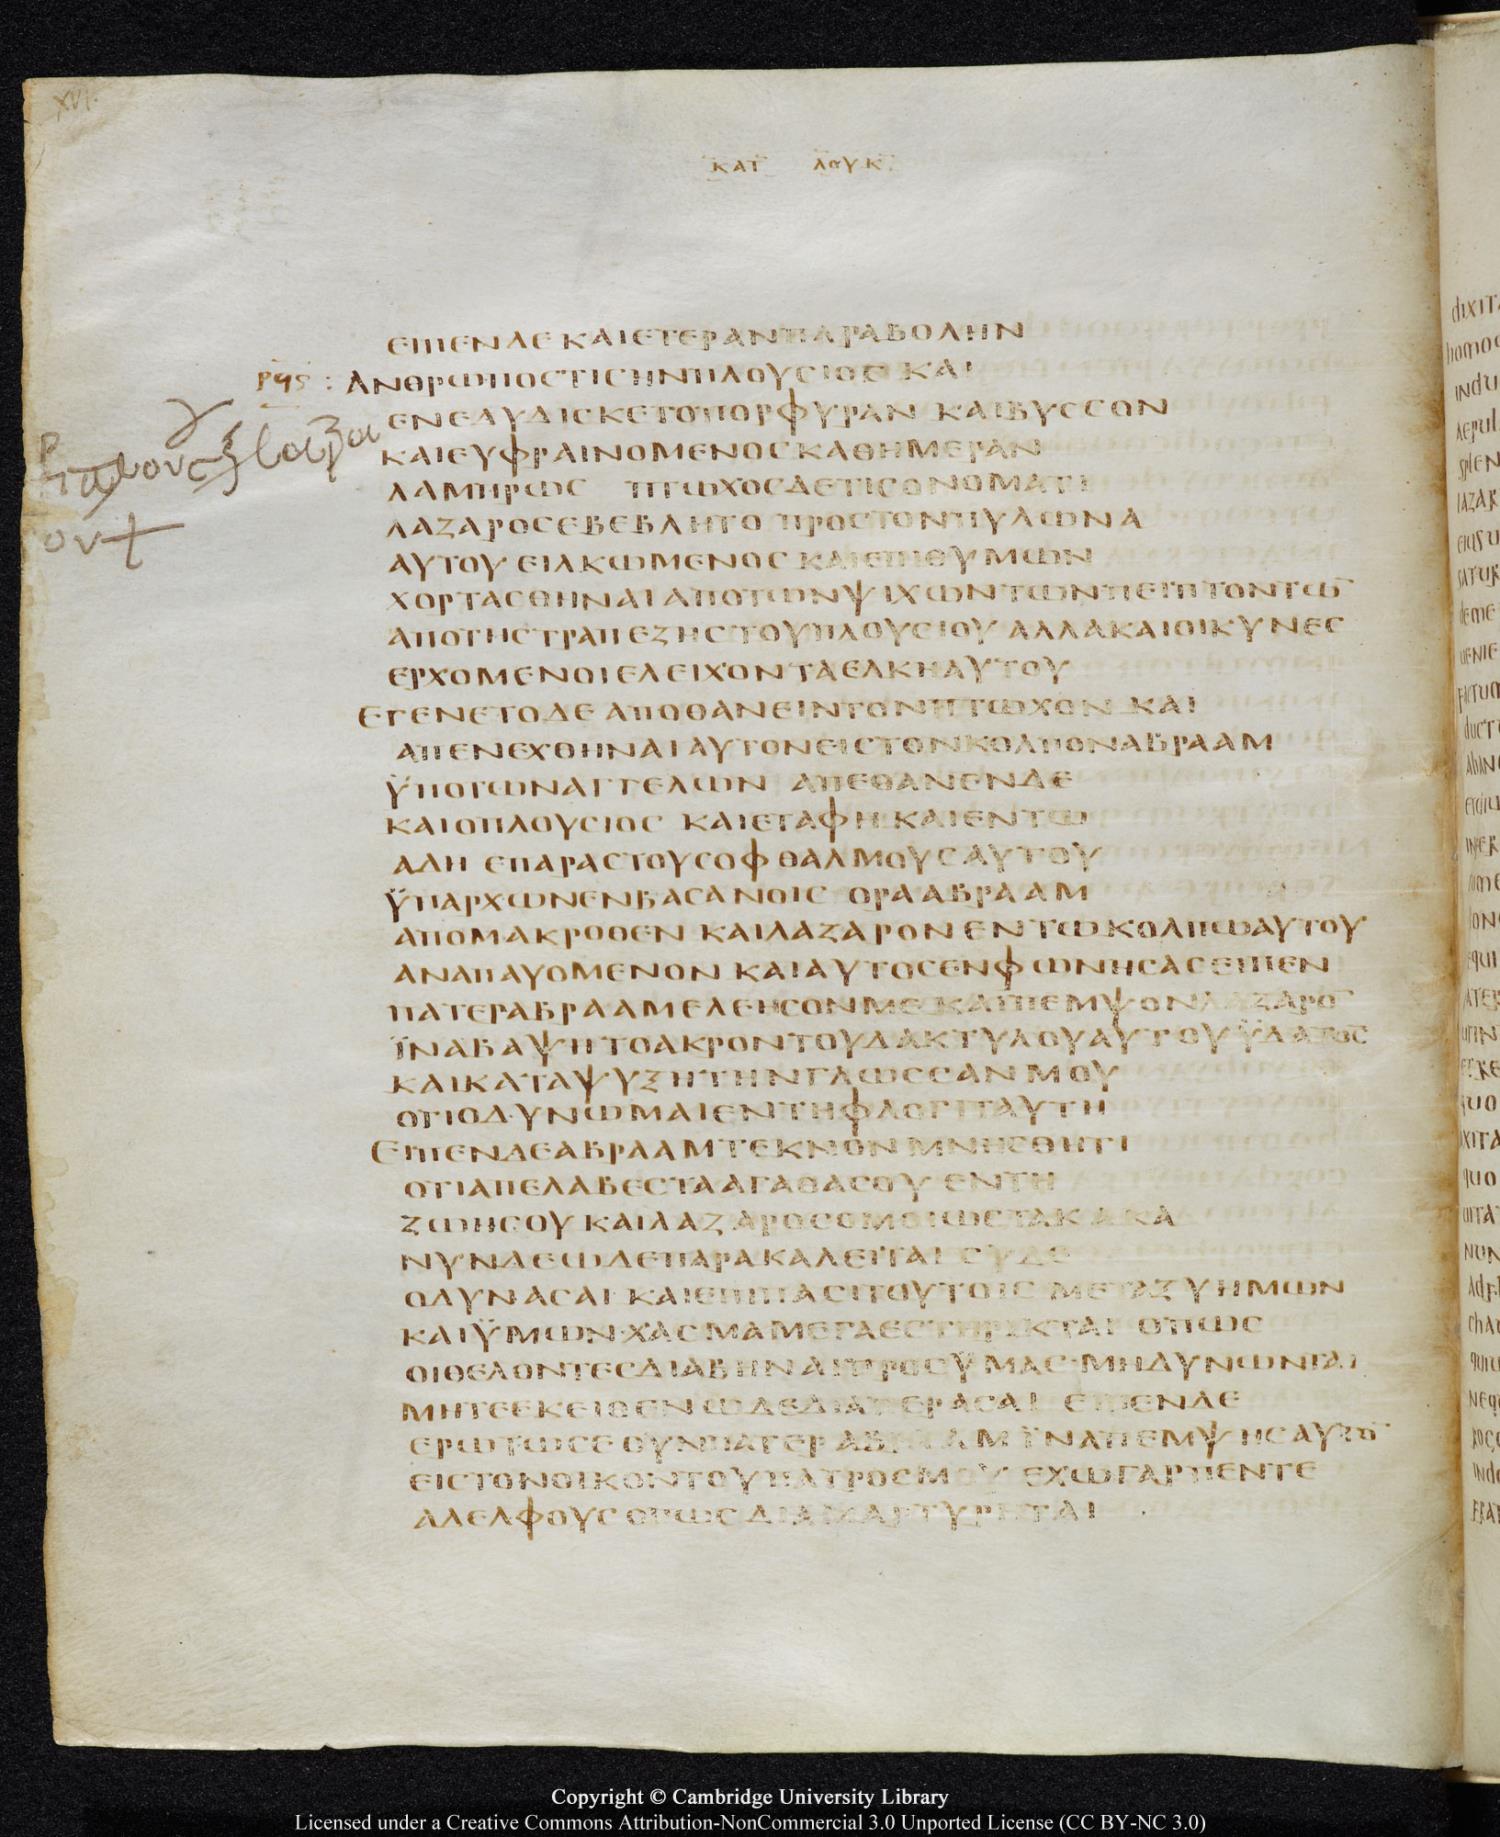 XVI.
ΚΑΤ ΛΟΥΚ
ΕΙΠΕΝΔΕ ΚΑΙΕΤΕΡΑΝΠΑΡΑΒΟΛΗΝ
ΡϤϚ : ΑΝΘΡΩΠΟΣΤΙΣΗΝΠΛΟΥΣΙΟΣ ΚΑΙ
ΕΝΕΔΥΔΙΣΚΕΤΟΠΟΡΦΥΡΑΝ ΚΑΙΒΥΣΣΟΝ
ΚΑΙΕΥΦΡΑΙΝΟΜΕΝΟΣΚΑΘΗΜΕΡΑΝ
ΛΑΜΠΡΩΣ ΠΤΩΧΟΣΔΕΤΙΣΟΝΟΜΑΤΙ
ΛΑΖΑΡΟΣΕΒΕΒΛΗΤΟ ΠΡΟΣΤΟΝΠΥΛΩΝΑ
ΑΥΤΟΥ ΕΙΛΚΩΜΕΝΟΣ ΚΑΙΕΠΙΘΥΜΩΝ
ΧΟΡΤΑΣΘΗΝΑΙ ΑΠΟΤΩΝΨΙΧΩΝΤΩΝΠΕΙΠΤΟΝΤΩ̅
ΑΠΟΤΗΣΤΡΑΠΕΖΗΣΤΟΥΠΛΟΥΣΙΟΥ ΑΛΛΑΚΑΙΟΙΚΥΝΕΣ
ΕΡΧΟΜΕΝΟΙΕΛΕΙΧΟΝΤΑΕΛΚΗΑΥΤΟΥ
ΕΓΕΝΕΤΟΔΕ ΑΠΟΘΑΝΕΙΝΤΟΝΠΤΩΧΟΝ ΚΑΙ
ΑΠΕΝΕΧΘΗΝΑΙ ΑΥΤΟΝΕΙΣΤΟΝΚΟΛΠΟΝΑΒΡΑΑΜ
ΫΠΟΤΩΝΑΓΓΕΛΩΝ ΑΠΕΘΑΝΕΝΔΕ
ΚΑΙΟΠΛΟΥΣΙΟΣ ΚΑΙΕΤΑΦΗ ΚΑΙΕΝΤΩ
ΑΔΗ ΕΠΑΡΑΣΤΟΥΣΟΦΘΑΛΜΟΥΣΑΥΤΟΥ
ΫΠΑΡΧΩΝΕΝΒΑΣΑΝΟΙΣ ΟΡΑΑΒΡΑΑΜ
ΑΠΟΜΑΚΡΟΘΕΝ ΚΑΙΛΑΖΑΡΟΝΕΝΤΩΚΟΛΠΩΑΥΤΟΥ
ΑΝΑΠΑΥΟΜΕΝΟΝ ΚΑΙΑΥΤΟΣΕΝΦΩΝΗΣΑΣΕΙΠΕΝ
ΠΑΤΕΡΑΒΡΑΑΜΕΛΕΗΣΟΝΜΕ ΚΑΙΠΕΜΨΟΝΛΑΖΑΡΟ̅
ΪΝΑΒΑΨΗΤΟΑΚΡΟΝΤΟΥΔΑΚΤΥΛΟΥΑΥΤΟΥΫΔΑΤΟΣ
ΚΑΙΚΑΤΑΨΥΞΗΤΗΝΓΛΩΣΣΑΝΜΟΥ
ΟΤΙΟΔΥΝΩΜΑΙΕΝΤΗΦΛΟΓΙΤΑΥΤΗ
ΕΙΠΕΝΔΕΑΒΡΑΑΜΤΕΚΝΟΝΜΝΗΣΘΗΤΙ
ΟΤΙΑΠΕΛΑΒΕΣΤΑΑΓΑΘΑΣΟΥ ΕΝΤΗ
ΖΩΗΣΟΥ ΚΑΙΛΑΖΑΡΟΣΟΜΟΙΩΣΤΑΚΑΚΑ
ΝΥΝΔΕΩΔΕΠΑΡΑΚΑΛΕΙΤΑΙ ΣΥΔΕ
ΟΔΥΝΑΣΑΙ ΚΑΙΕΠΙΠΑΣΙΤΟΥΤΟΙΣ ΜΕΤΑΞΥΗΜΩΝ
ΚΑΙΫΜΩΝ·ΧΑΣΜΑΜΕΓΑΕΣΤΗΡΙΚΤΑΙ ΟΠΩΣ
ΟΙΘΕΛΟΝΤΕΣΔΙΑΒΗΝΑΙΠΡΟΣΫΜΑΣ ΜΗΔΥΝΩΝΤΑΙ
ΜΗΤΕΕΚΕΙΘΕΝΩΔΕΔΙΑΠΕΡΑΣΑΙ ΕΙΠΕΝΔΕ
ΕΡΩΤΩΣΕ ΟΥΝΠΑΤΕΡ ΑΒΡΑΑΜΪΝΑΠΕΜΨΗΣΑΥΤΟ̅
ΕΙΣΤΟΝΟΙΚΟΝΤΟΥΠΑΤΡΟΣΜΟΥ ΕΧΩΓΑΡΠΕΝΤΕ
ΑΔΕΛΦΟΥΣ ΟΠΩΣ ΔΙΑΜΑΡΤΥΡΗΤΑΙ
Copyright © Cambridge University Library
Licensed under a Creative Commons Attribution-NonCommercial 3.0 Unported License (CC BY-NC 3.0)